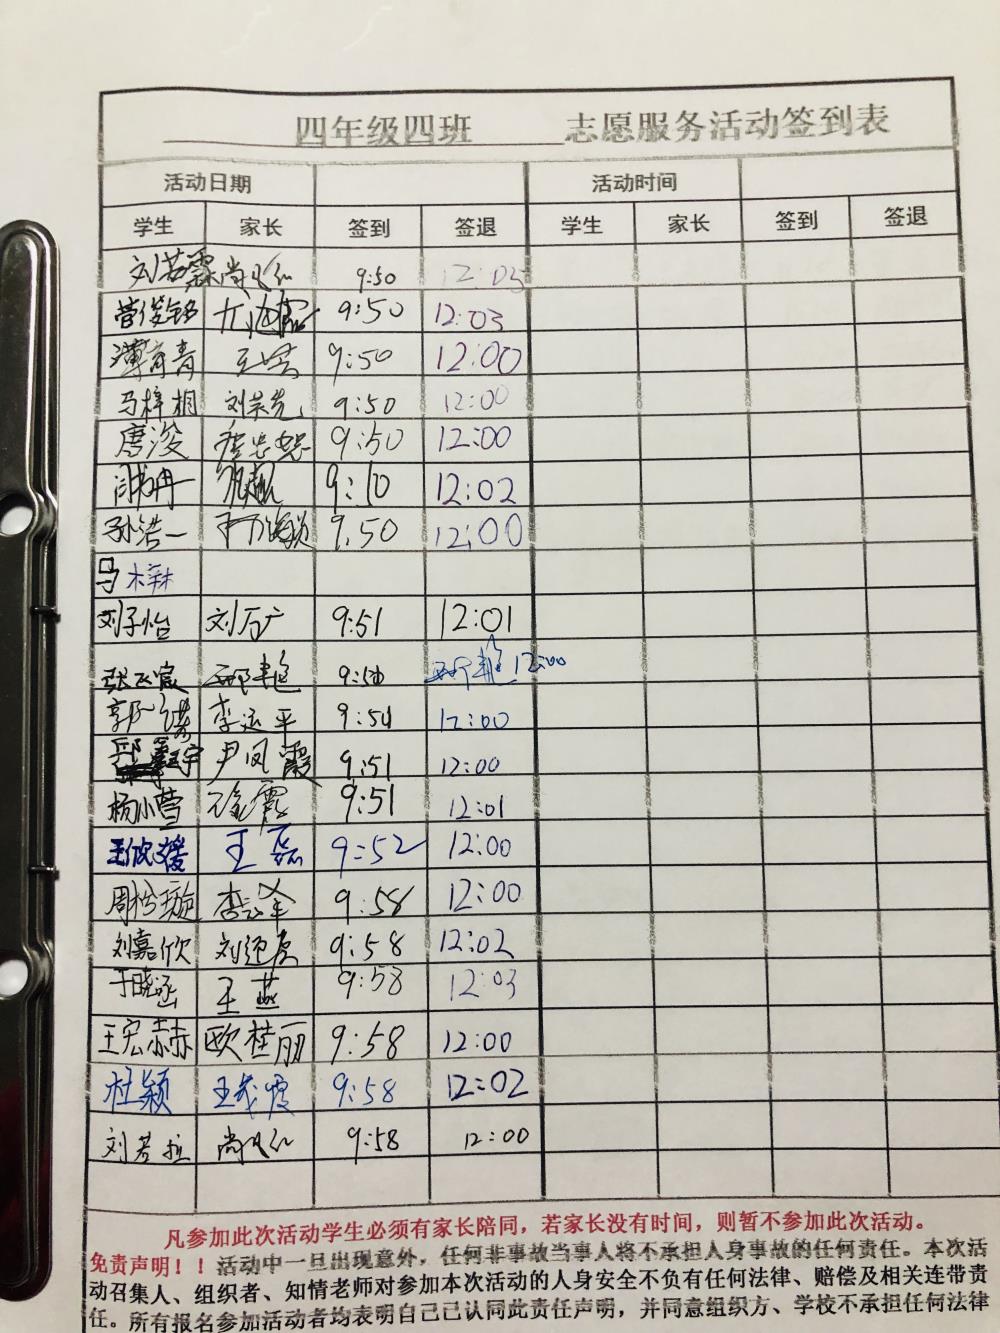 四年级四班 志愿服务活动签到表
活动日期 活动时间
学生 家长 签到 签退 学生 家长 签到 签退
刘若霖 尚 9:50 12:05
9:50 12:03
薄育青 9:50 12:00
马梓桐 刘荣先 9:50 12:00
唐浚 唐忠恕 9:50 12:00
9:10 12:02
孙浩一 9:50 12:00
马梓
刘子怡 刘万广 9:51 12:01
邢艳 邢艳 12:00
李运平 12:00
尹凤霞 9:51 12:00
杨小萱 9:51 12:01
王欣媛 王磊 9:52 12:00
周怜璇 9:58 12:00
刘嘉欣 9:58 12:02
于晓函 王燕 9:58 12:03
王宏赫 欧桂丽 9:58 12:00
杜颖 9:58 12:02
刘若拉 尚 9:58 12:00
凡参加此次活动学生必须有家长陪同，若家长没有时间，则暂不参加此次活动。
免责声明！！活动中一旦出现意外，任何非事故当事人将不承担人身事故的任何责任。本次活
动召集人、组织者、知情老师对参加本次活动的人身安全不负有任何法律、赔偿及相关连带责
任。所有报名参加活动者均表明自己已认同此责任声明，并同意组织方、学校不承担任何法律